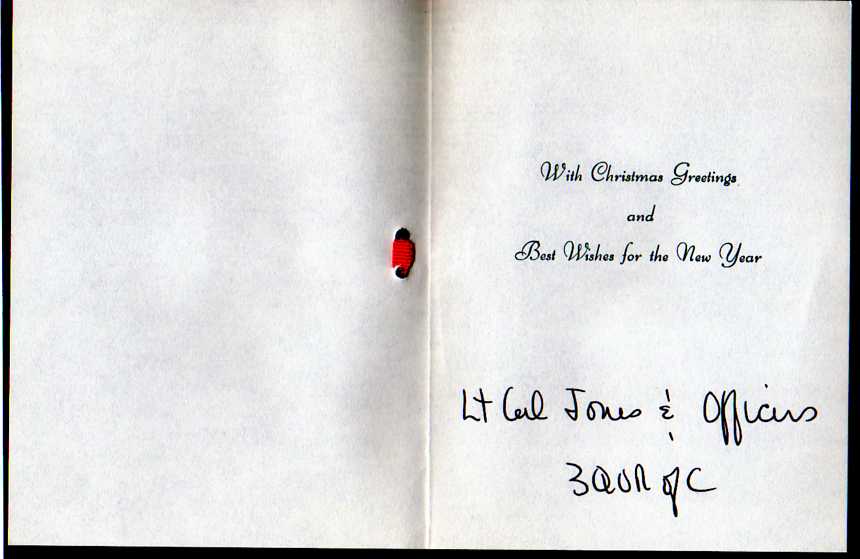 With Christmas Greetings
and
Best Wishes for the New Year
Lt Col Jones & Officers
3QOR of C